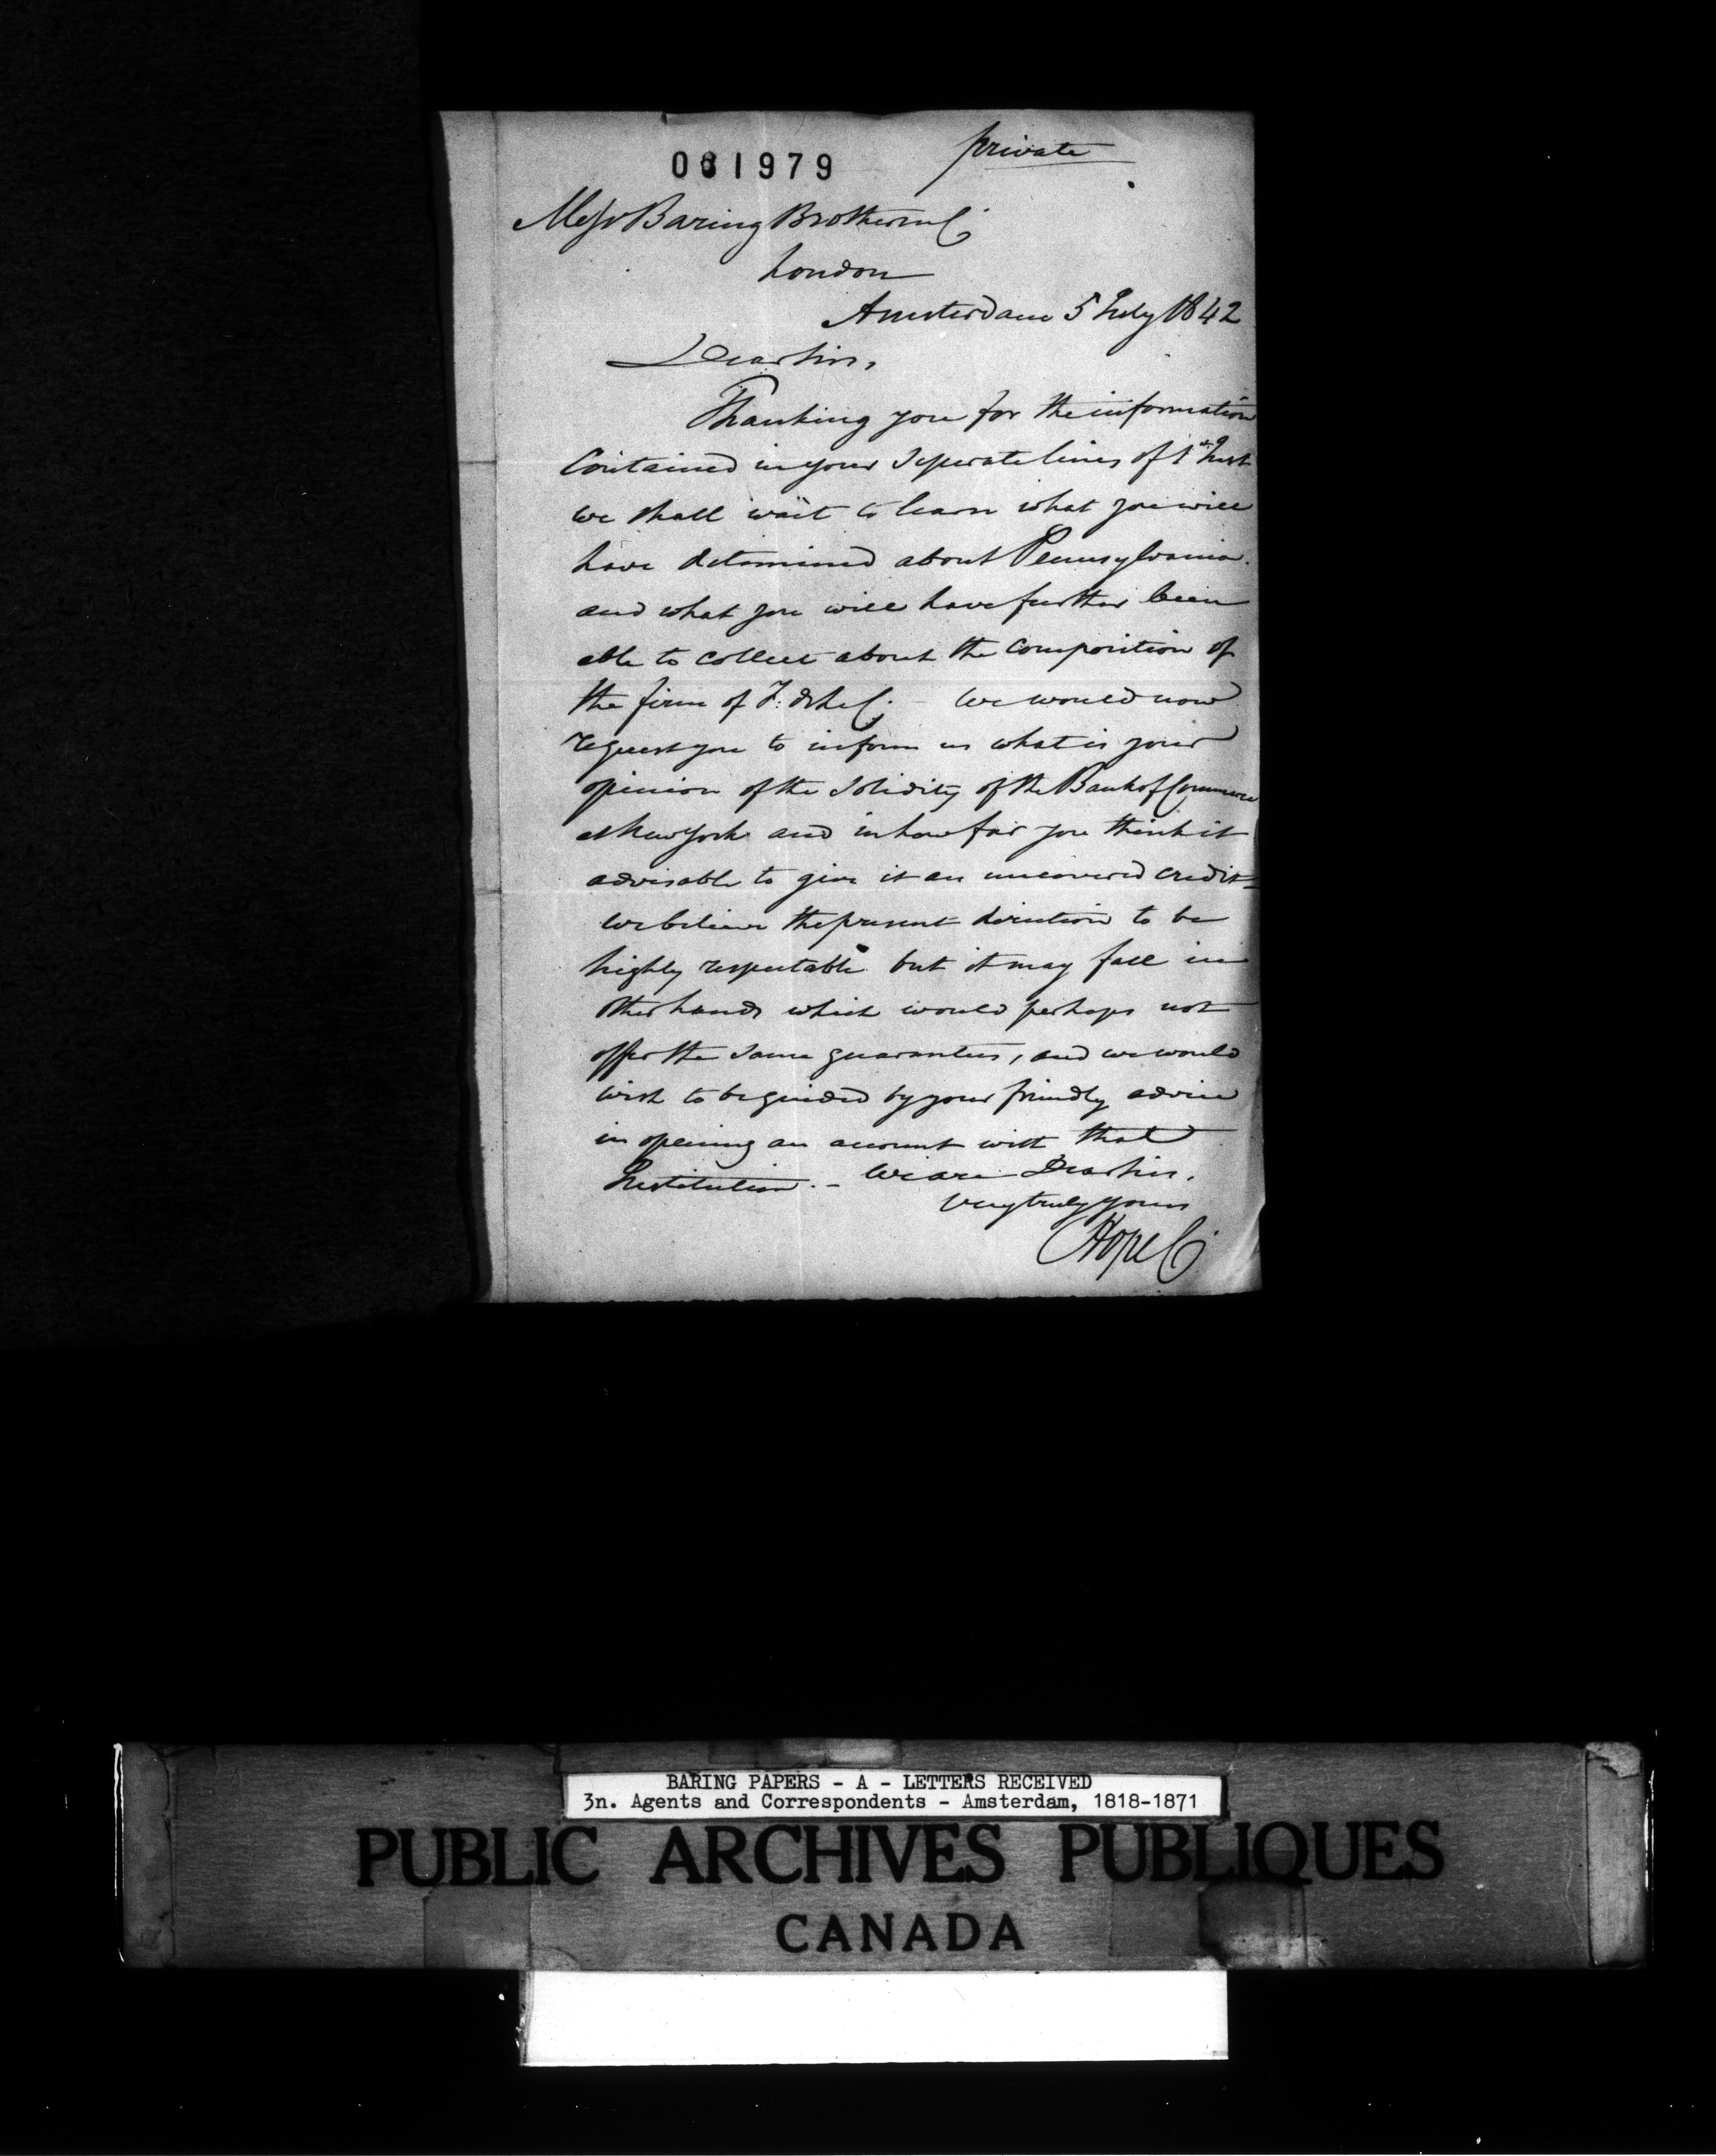 private
081979
Messrs Baring Brothers & C°
London
Amsterdam 5 July 1842
Dear Sirs,
Thanking you for the information
contained in your separate lines of 1st Inst
we shall wait to learn what you will
have determined about Pennsylvania.
and what you will have further been
able to collect about the composition of
the firm of F: de & C°. - We would now
request you to inform us what is your
opinion of the solidity of the Bank of Commerce
at New York and in how far you think it
advisable to give it an uncovered credit -
We believe the present direction to be
highly respectable but it may fall in
other hands which would perhaps not
offer the same guarantees, and we would
wish to be guided by your friendly advice
in opening an account with that
Institution. - We are Dear Sirs,
very truly yours
Hope & C°
BARING PAPERS - A - LETTERS RECEIVED
3n. Agents and Correspondents - Amsterdam, 1818-1871
PUBLIC ARCHIVES PUBLIQUES
CANADA